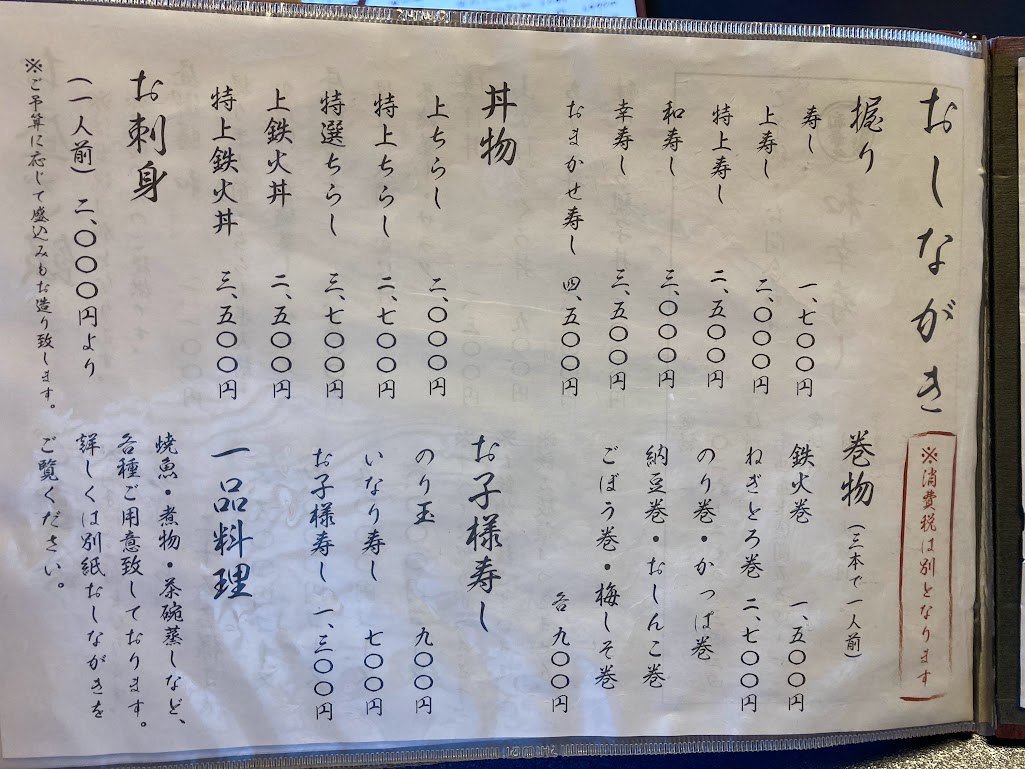 おしながき
※消費税は別となります
握り
寿し 一、七〇〇円
上寿し 二、〇〇〇円
特上寿し 二、五〇〇円
和寿し 三、〇〇〇円
幸寿し 三、五〇〇円
おまかせ寿し 四、五〇〇円
巻物（三本で一人前）
鉄火巻 一、五〇〇円
ねぎとろ巻 二、七〇〇円
のり巻・かっぱ巻
納豆巻・おしんこ巻
ごぼう巻・梅しそ巻
各 九〇〇円
丼物
上ちらし 二、〇〇〇円
特上ちらし 二、七〇〇円
特選ちらし 三、七〇〇円
上鉄火丼 二、五〇〇円
特上鉄火丼 三、五〇〇円
お子様寿し
のり玉 九〇〇円
いなり寿し 七〇〇円
お子様寿し 一、三〇〇円
お刺身
（一人前）二、〇〇〇円より
※ご予算に応じて盛込みもお造り致します。
一品料理
焼魚・煮物・茶碗蒸しなど、
各種ご用意致しております。
詳しくは別紙おしながきを
ご覧ください。